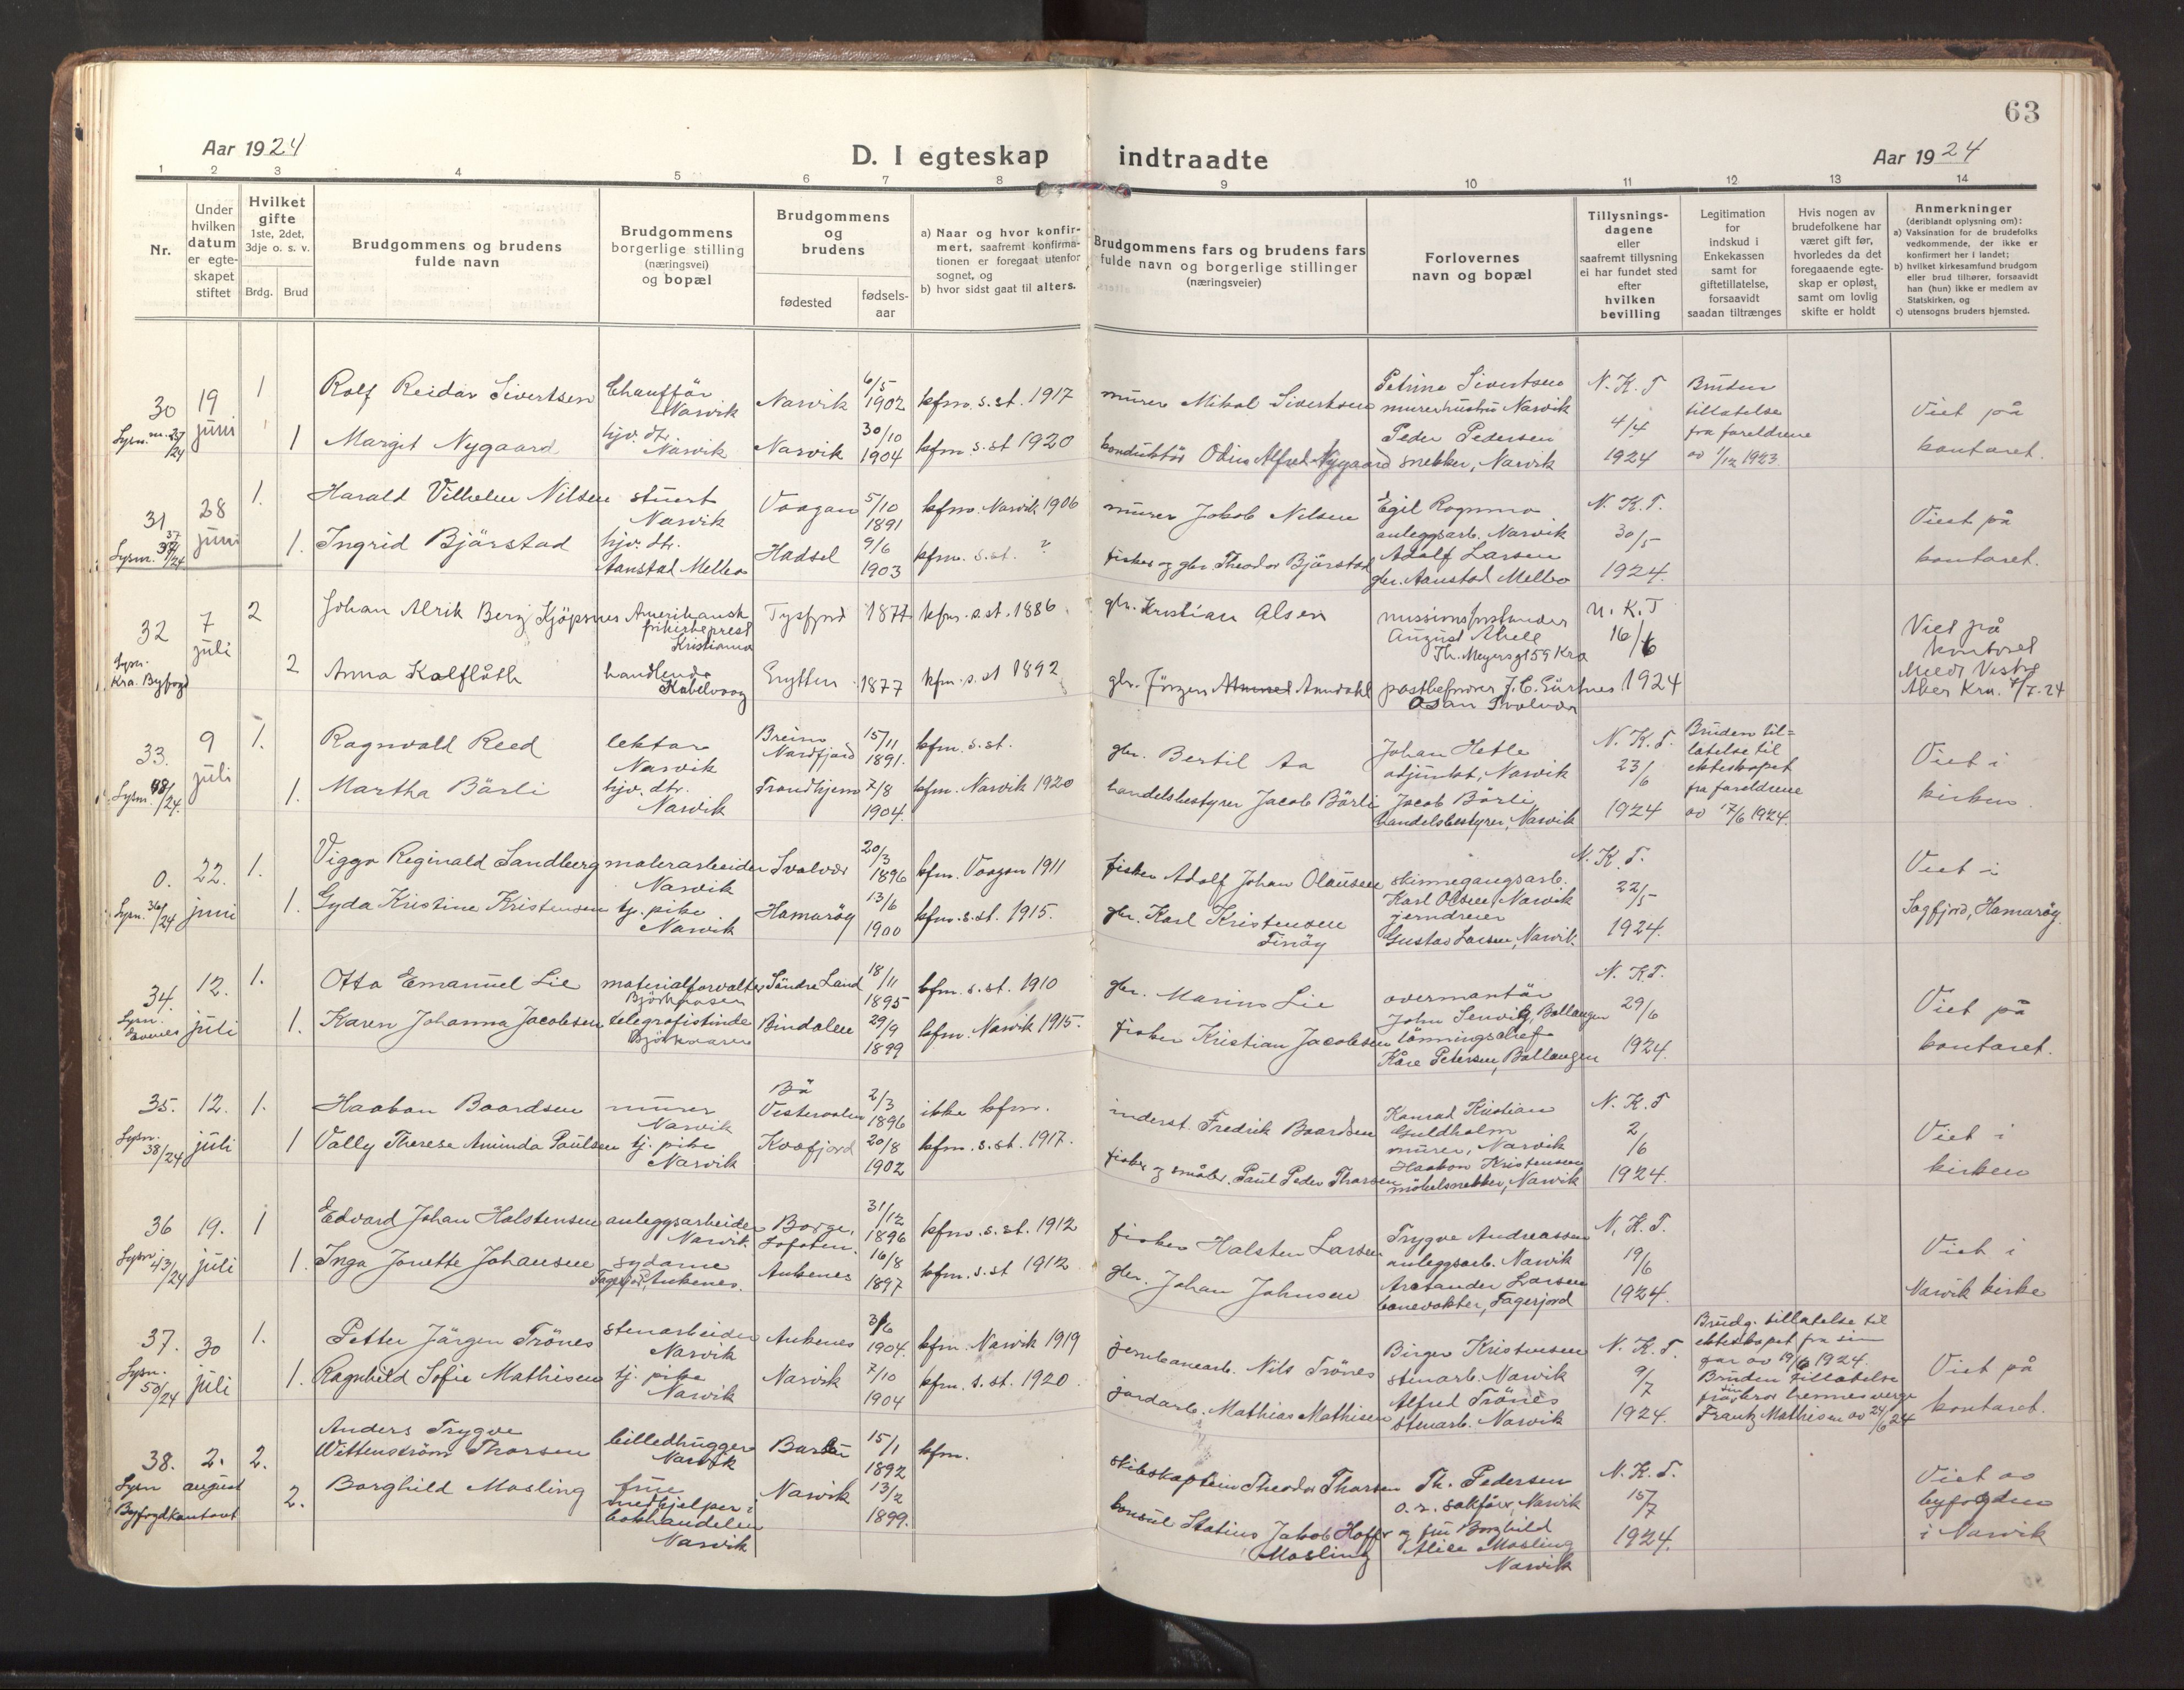 63
Aar 1924
D. I egteskap indtraadte
Aar 1924
1 2 3 4 5 6 7 8 9 10 11 12 13 14
Nr.
Under
hvilken
datum
er egte-
skapet
stiftet
Hvilket
gifte
1ste, 2det,
3dje o. s. v.
Brdg. Brud
Brudgommens og brudens
fulde navn
Brudgommens
borgerlige stilling
(næringsvei)
og bopæl
Brudgommens
og
brudens
fødested
fødsels-
aar
a) Naar og hvor konfir-
mert, saafremt konfirma-
tionen er foregaat utenfor
sognet, og
b) hvor sidst gaat til alters.
Brudgommens fars og brudens fars
fulde navn og borgerlige stillinger
(næringsveier)
Forlovernes
navn og bopæl
Tillysnings-
dagene
eller
saafremt tillysning
ei har fundet sted
efter
hvilken
bevilling
Legitimation
for
indskud i
Enkekassen
samt for
giftetillatelse,
forsaavidt
saadan tiltrænges
Hvis nogen av
brudefolkene har
været gift før,
hvorledes da det
foregaaende egte-
skap er opløst,
samt om lovlig
skifte er holdt
Anmerkninger
(deriblandt oplysning om):
a) Vaksination for de brudefolks
vedkommende, der ikke er
konfirmert her i landet;
b) hvilket kirkesamfund brudgom
eller brud tilhører, forsaavidt
han (hun) ikke er medlem av
Statskirken, og
c) utensogns bruders hjemsted.
30 19 juni 1
Rolf Reidar Sivertsen
Chaufför
Narvik
Narvik
6/5
1902
kfm. s. st. 1917
murer Mikal Sivertsen
Petrine Sivertsen
murerhustru Narvik
N. K. T
4/4
1924
Bruden
tillatelse
fra foreldrene
av 1/12 1923
Viet på
kontoret.
1 Margit Nygaard
hjv. dtr.
Narvik
Narvik
30/10
1904
kfm. s. st 1920
konduktör Odin Alfred Nygaard
Peder Pedersen
snekker, Narvik
31 28 juni 1.
Harald Vilhelm Nilsen
stuert
Narvik
Vaagan
5/10
1891
kfm. Narvik 1906
murer Jakob Nilsen
Egil Rognmo
anleggsarb. Narvik
N. K. T.
30/5
1924.
Viet på
kontoret.
1. Ingrid Bjärstad
hjv. dtr.
Aanstad Melbo
Hadsel
9/6
1903
kfm. s. st. ?
fisker og gbr. Theodor Bjärstad
Adolf Larsen
gbr. Aanstad Melbo
32 7 juli 2
Johan Alrik Berg Kjöpsnes
Amerikansk
frikirkeprest
Kristiania
Tysfjord
1871
kfm. s. st. 1886
gbr. Kristian Olsen
missionsforstander
August Abell
Th. Meyersgt 59 Kra
N. K. T
16/6
1924
Viet på
kontoret
Vestre
Aker Kra. 7/7. 24
Kra. Byfogd
2 Anna Kalflåth
handlende
Kabelvaag
1877
kfm. s. st 1892
gbr. Jörgen Amndahl
Osan Svolvær
33. 9 juli 1.
Ragnvald Reed
lektor
Narvik
Breim
Nordfjord
15/11
1891.
kfm. s. st.
gbr. Bertil Aa
Johan Hetle
adjunkt, Narvik
N. K. T.
23/6
1924
Bruden til=
latelse til
ekteskapet
fra foreldrene
av 17/6 1924.
Viet i
kirken.
Lysn. 48/24.
1. Martha Bärli
hjv. dtr.
Narvik
Trondhjem
7/8
1904.
kfm. Narvik 1920
handelsbestyrer Jacob Börli
Jacob Börli
handelsbestyrer, Narvik
0. 22. juni 1.
Viggo Reginald Sandberg
malerarbeider
Narvik
Svolvær
20/3
1896
kfm. Vaagan 1911
fisker Adolf Johan Olausen
skinnegangsarb.
Karl Olsen, Narvik
N. K. T.
22/5
1924.
Viet i
Sagfjord, Hamaröy.
Lysn. 36/24
1. Gyda Kristine Kristensen
tj. pike
Narvik
Hamaröy
13/6
1900
kfm. s. st. 1915.
gbr. Karl Kristensen
Finöy
jerndreier
Gustav Larsen, Narvik
34. 12. juli 1.
Otto Emanuel Lie
materialforvalter
Björkaasen
Söndre Land
18/11
1895
kfm. s. st. 1910
gbr. Marius Lie
overmontör
Ballangen
N. K. T.
29/6
1924.
Viet på
kontoret.
Lysn.
Evenes
1. Karen Johanna Jacobsen
telegrafistinde
Björkaasen
Bindalen
29/9
1899
kfm. Narvik 1915.
fisker Kristian Jacobsen
lönningschef
Kåre Petersen, Ballangen
35. 12. juli 1.
Haakon Baardsen
murer
Narvik
Bö
Vesteraalen
2/3
1896
ikke kfm.
inderst. Fredrik Baardsen
Konrad Kristian
Guldholm
murer, Narvik
N. K. T
2/6
1924.
Viet i
kirken
Lysn. 38/24
1 Vally Therese Aminda Paulsen
tj. pike
Narvik
Kvæfjord
20/8
1902
kfm. s. st. 1917.
fisker og småbr. Paul Peder Thorsen
Haakon Kristensen
möbelsnekker, Narvik
36 19. juli 1
Edvard Johan Halstensen
anleggsarbeider
Narvik
Borge,
Lofoten.
31/12
1896
kfm. s. st. 1912
fisker Halsten Larsen
Trygve Andreassen
anleggsarb. Narvik
N. K. T.
19/6
1924.
Viet i
Narvik kirke
Lysn 43/24
1. Inga Jonette Johansen
sydame
Fagerjord, Ankenes.
Ankenes
16/8
1897
kfm. s. st 1912
gbr. Johan Johnsen
Aretander Larsen
banevokter, Fagerjord
37. 30 juli 1.
Petter Jörgen Trönes
stenarbeider
Narvik
Ankenes
1904.
kfm. Narvik 1919
jernbanearb. Nils Trönes
Birger Kristensen
stenarb. Narvik
N. K. T.
9/7
1924.
Brudg. tillatelse til
ekteskapet fra sin
far av 19/6 1924.
Bruden tillatelse
fra sin bror hennes verge
Frantz Mathisen av 24/6 24
Viet på
kontoret.
Lysn. 50/24
1. Ragnhild Sofie Mathisen
tj. pike
Narvik
Narvik
7/10
1904
kfm. s. st. 1920.
jordarb. Mathias Mathisen
Alfred Trönes
stenarb. Narvik
38. 2. august 2.
Anders Trygve
Wittenström Thorsen
billedhugger
Narvik
15/1
1892
kfm.
skibskaptein Theodor Thorsen
Th. Pedersen
o. r. sakförer, Narvik
N. K. T.
15/7
1924.
Viet av
byfogden
i Narvik
Lysn
Byfogdkontoret
2. Borghild Mosling
frue
medhjelper i
bokhandelen
Narvik
Narvik
13/2
1899.
konsul Statius Jakob Hoff
Mosling
og fru Borghild
Alice Mosling
Narvik